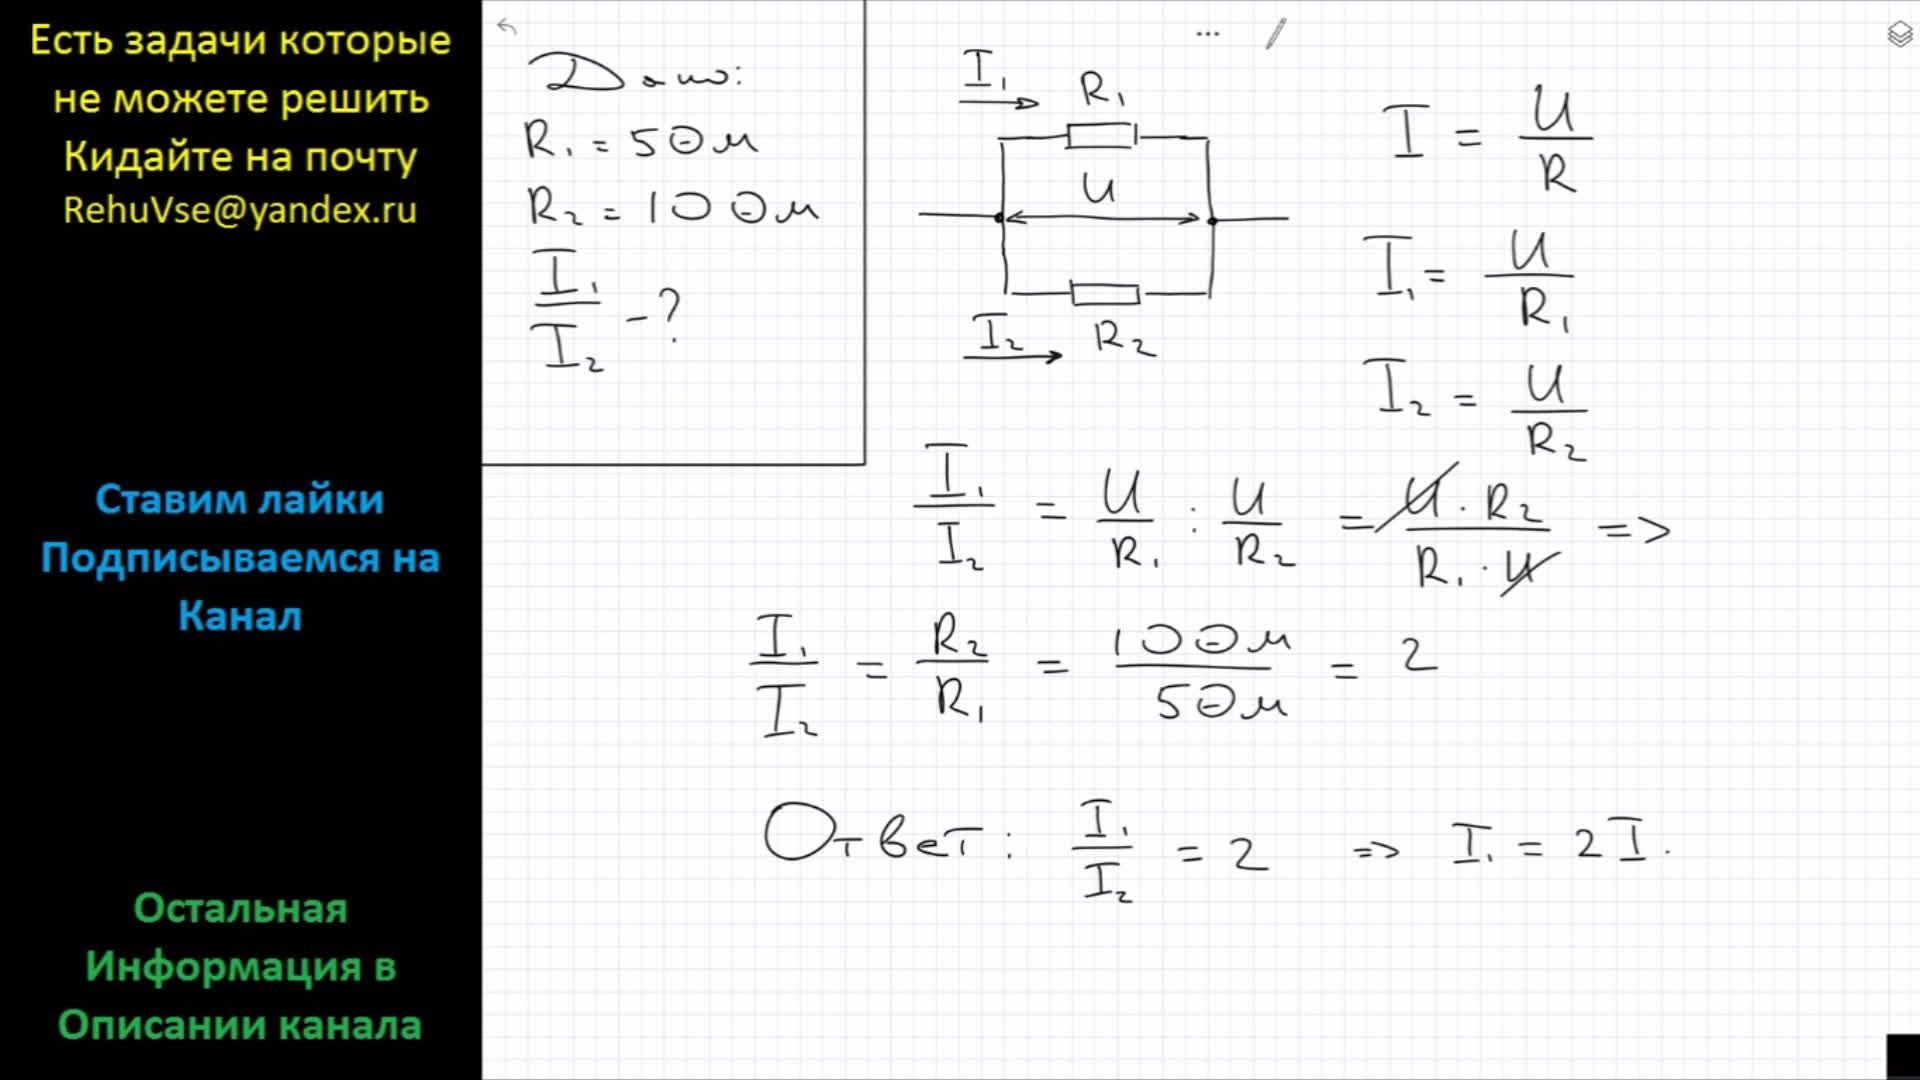 Есть задачи которые
не можете решить
Кидайте на почту
RehuVse@yandex.ru
Ставим лайки
Подписываемся на
Канал
Остальная
Информация в
Описании канала
Дано:
R₁ = 5 Ом
R₂ = 10 Ом
I₁/I₂ - ?
I₁
R₁
U
I₂
R₂
I = U/R
I₁ = U/R₁
I₂ = U/R₂
I₁/I₂ = U/R₁ : U/R₂ = U · R₂/R₁ · U =>
I₁/I₂ = R₂/R₁ = 10 Ом/5 Ом = 2
Ответ: I₁/I₂ = 2 => I₁ = 2I.